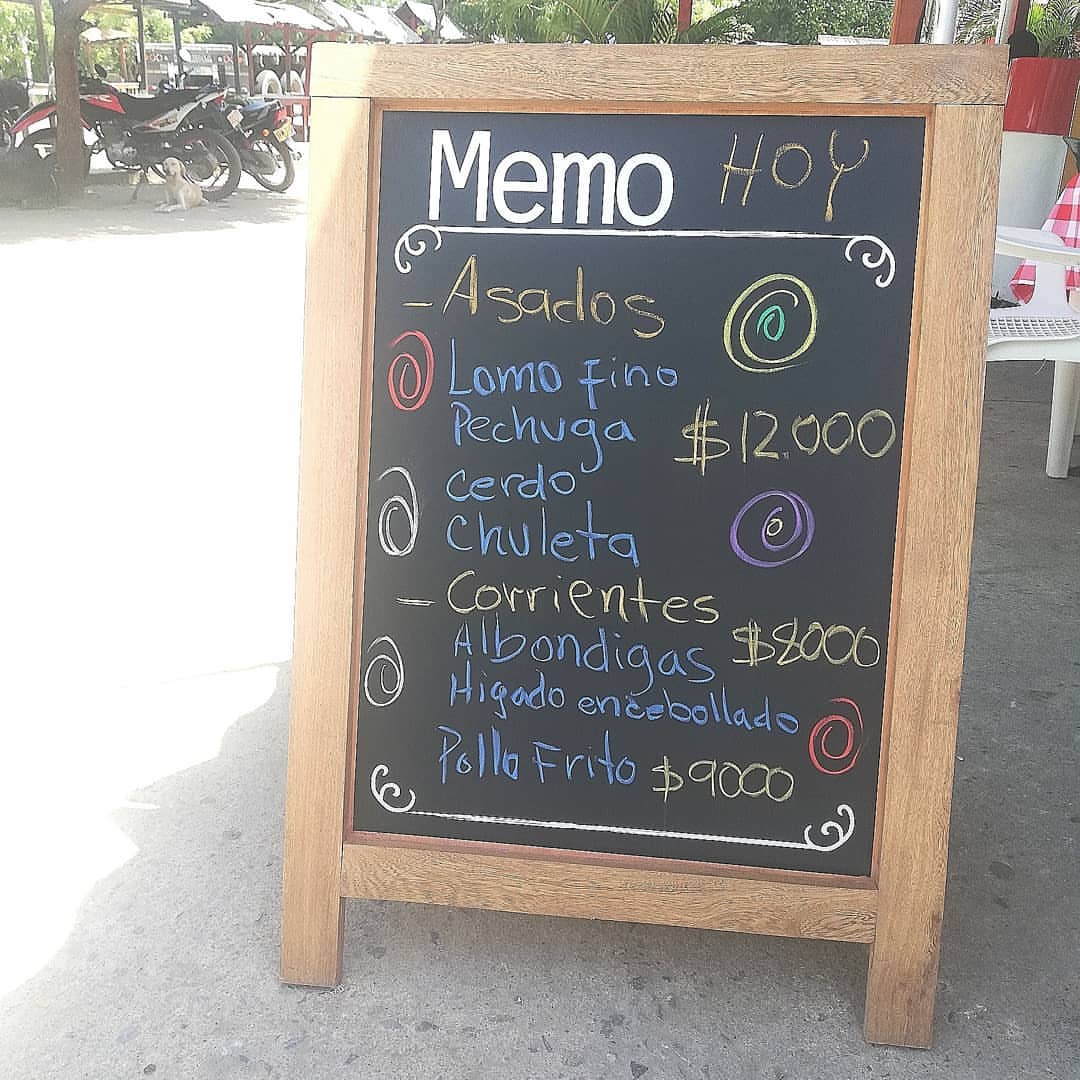 Memo HOY
- Asados
Lomo fino
Pechuga $12.000
cerdo
Chuleta
- Corrientes
Albondigas $8000
Higado encebollado
Pollo Frito $9000